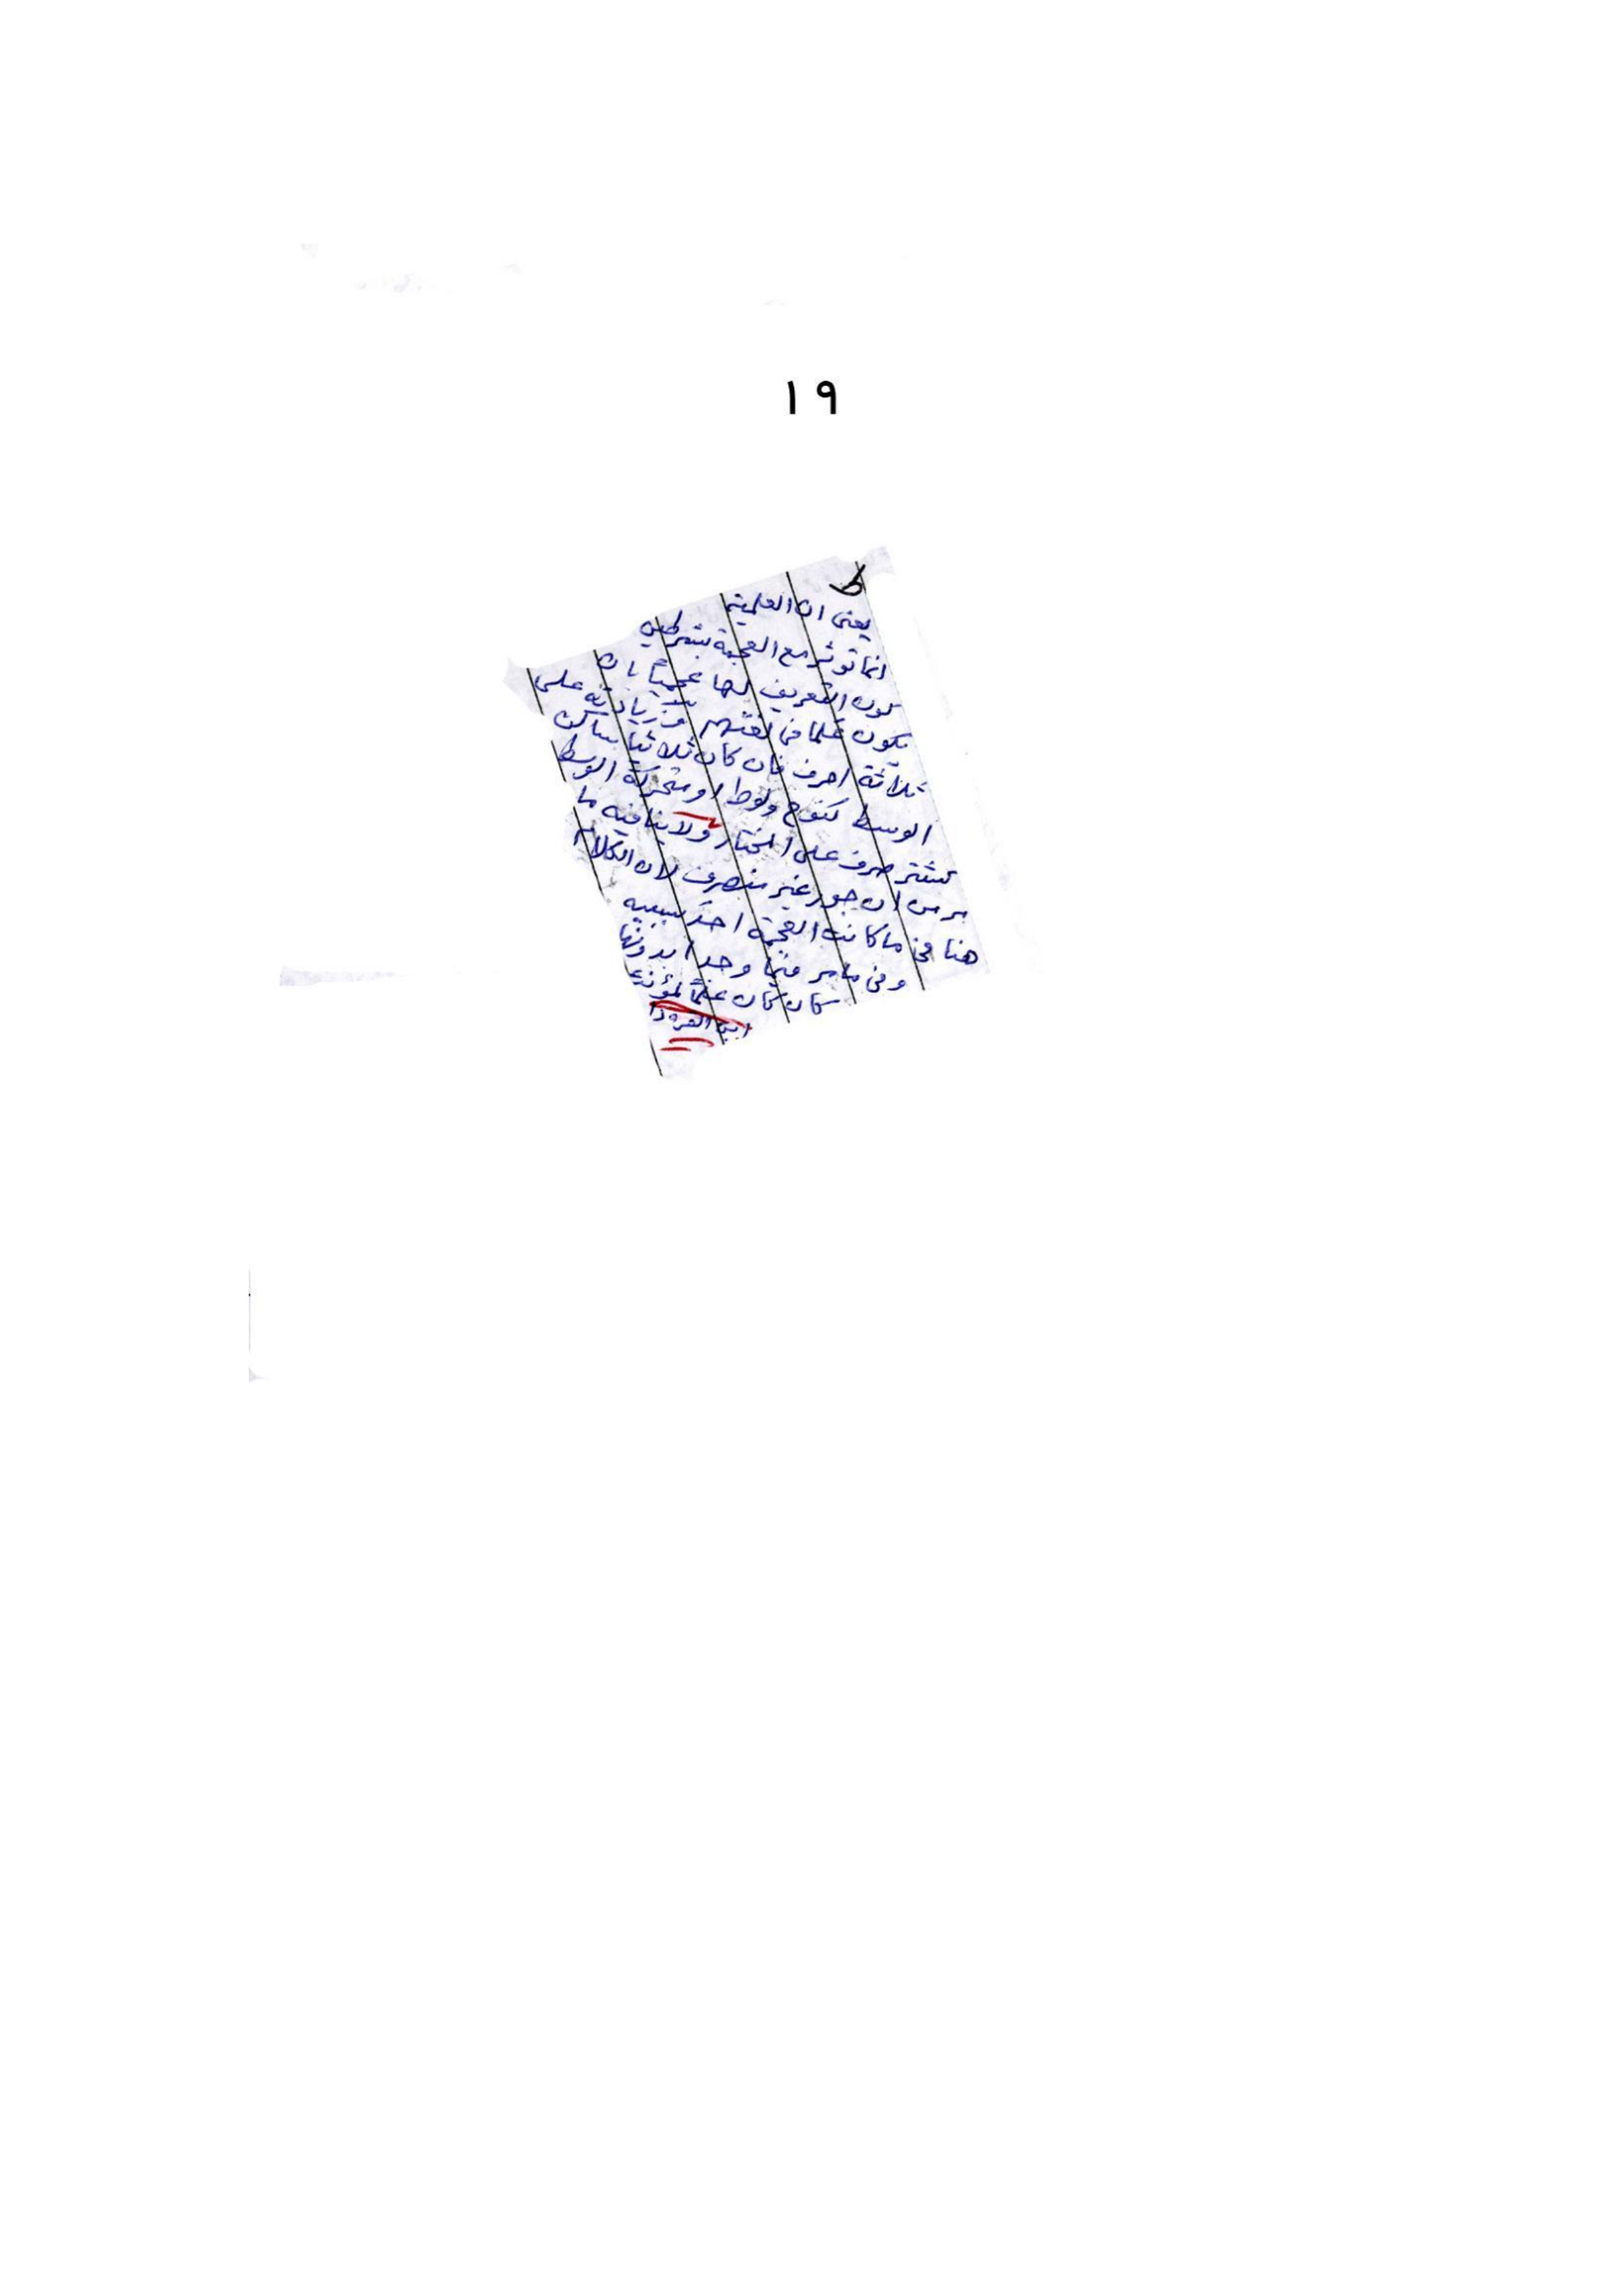 ١٩
يعنى ان العلمية
انما توثر مع العجمة بشرطين
كون التعريف لها عجمياً بان
يكون علما فى لغتهم وزيادته على
ثلاثة احرف فان كان ثلاثيا ساكن
الوسط كنوح ولوط او متحركة الوسط
كشتر صرف على المختار ولا ينافيه ما
مر من ان جور غير منصرف لان الكلام
هنا فى ما كانت العجمة احد سببيه
وفى ما مر فيما وجدا بدونها
كان علماً لمؤنث
ابن